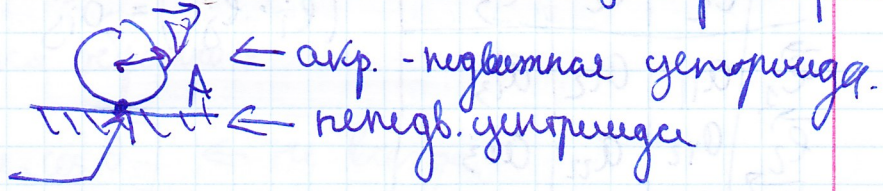 V
← окр. - подвижная центроида.
A
← неподв. центроида